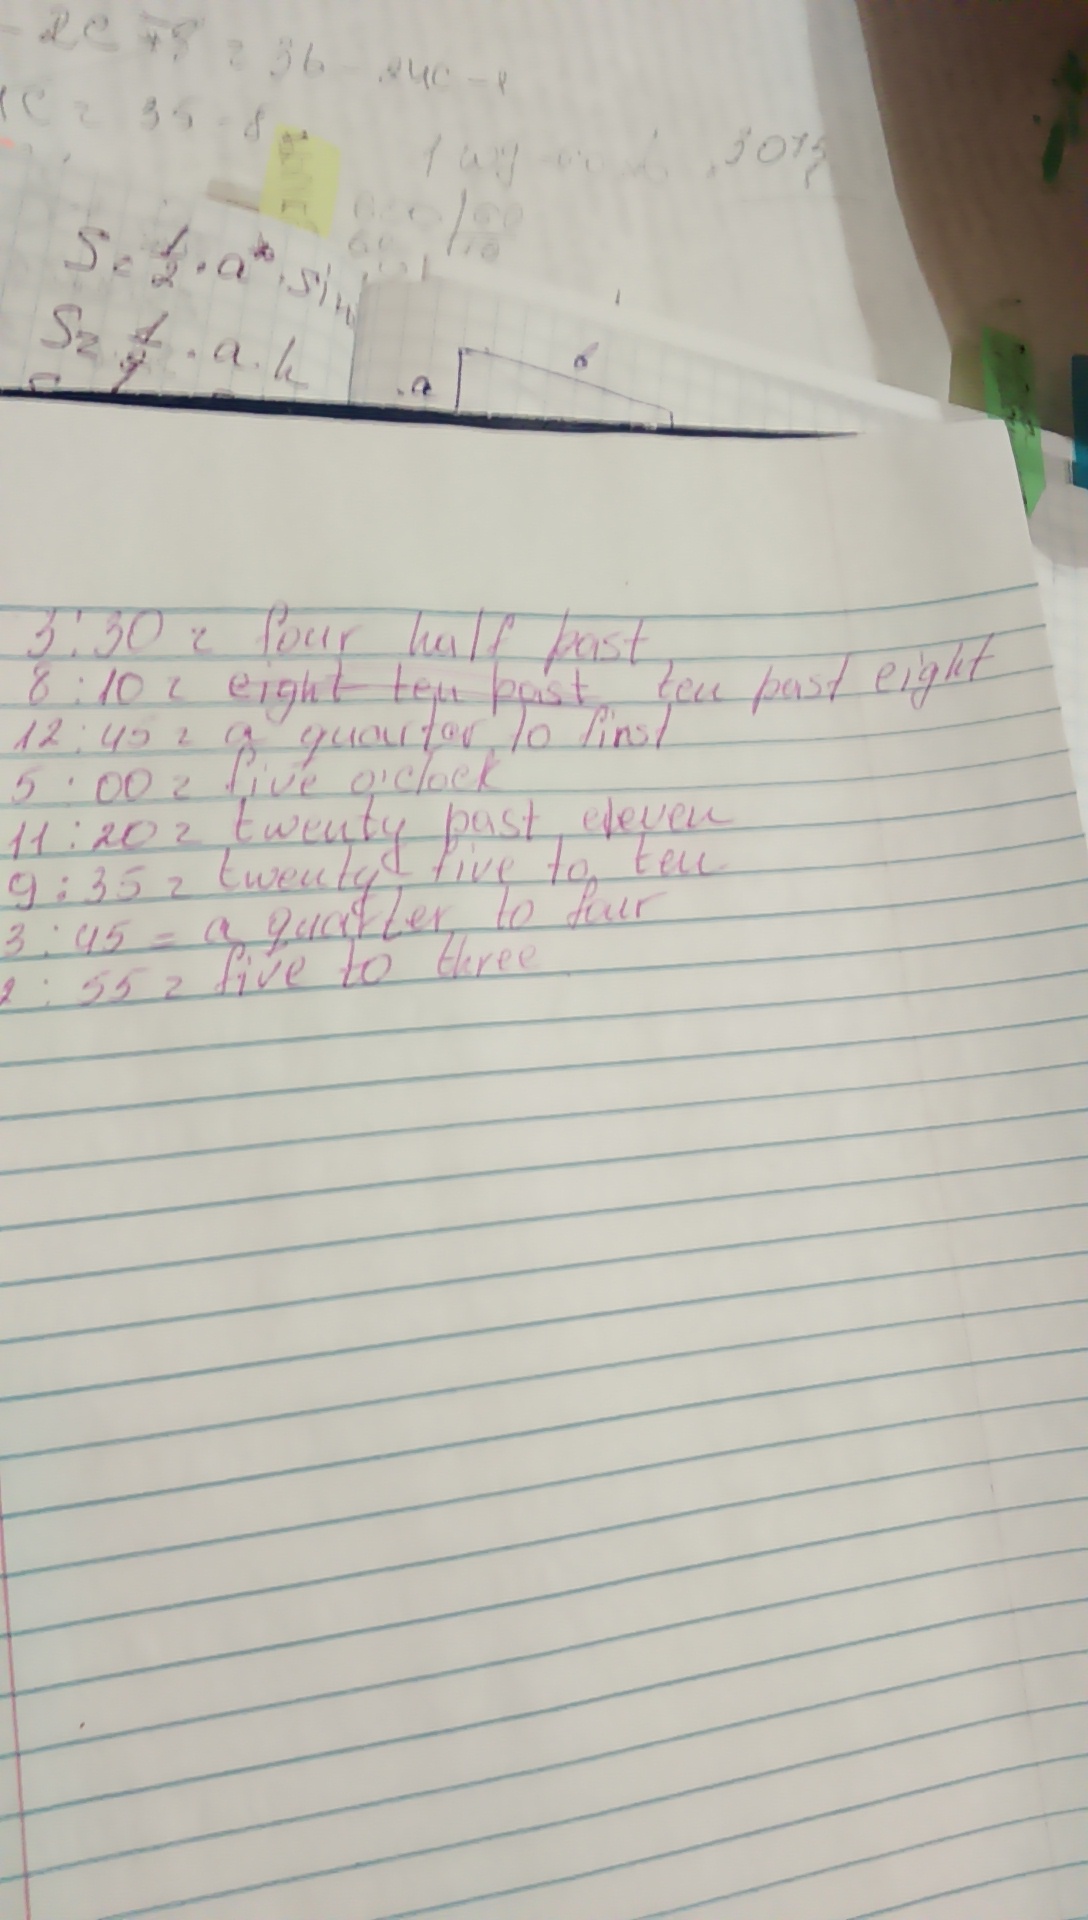 - 2C +8 = 36 - 24C - 8
1C = 35 - 8
S = 1/2 · a · sin
S = 1/2 · a · h
a b
3:30 = four half past
8:10 = eight ten past ten past eight
12:45 = a quarter to first
5:00 = five o'clock
11:20 = twenty past eleven
9:35 = twenty five to ten
3:45 = a quarter to four
2:55 = five to three